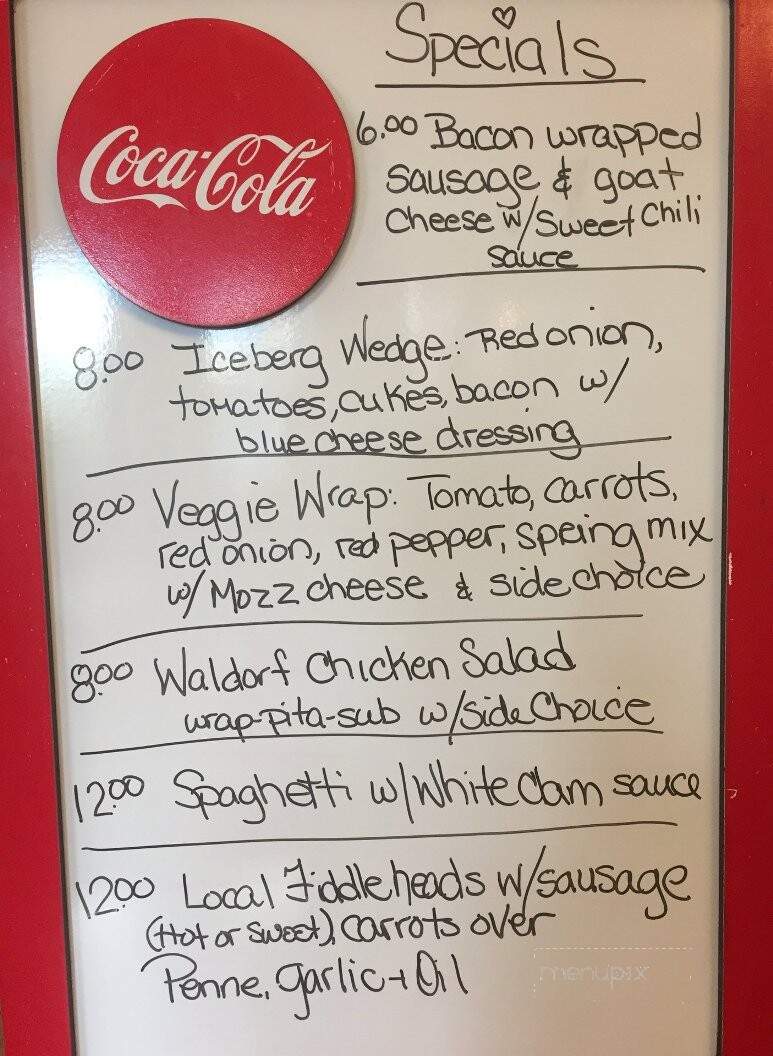 Specials
Coca-Cola
6.00 Bacon wrapped
sausage & goat
cheese w/Sweet Chili
sauce
8.00 Iceberg Wedge: Red onion,
tomatoes, cukes, bacon w/
blue cheese dressing
8.00 Veggie Wrap: Tomato, carrots,
red onion, red pepper, speing mix
w/ Mozz cheese & side choice
8.00 Waldorf Chicken Salad
wrap-pita-sub w/side Choice
12.00 Spaghetti w/White clam sauce
12.00 Local Fiddleheads w/sausage
(Hot or sweet), carrots over
Penne, garlic + Oil
menupix